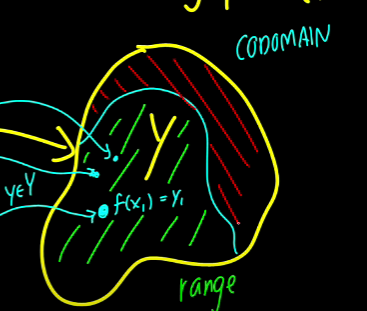 CODOMAIN
Y
y∈Y
f(x₁) = y₁
range